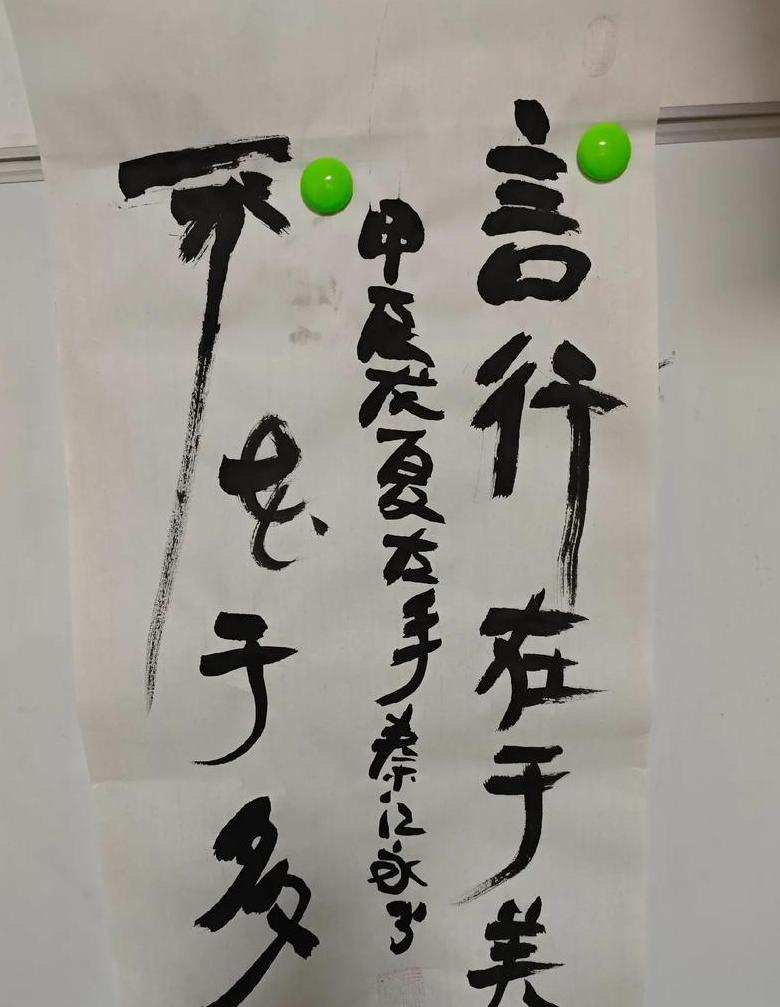 言行在于美
甲辰夏左手蔡永书
不在于多